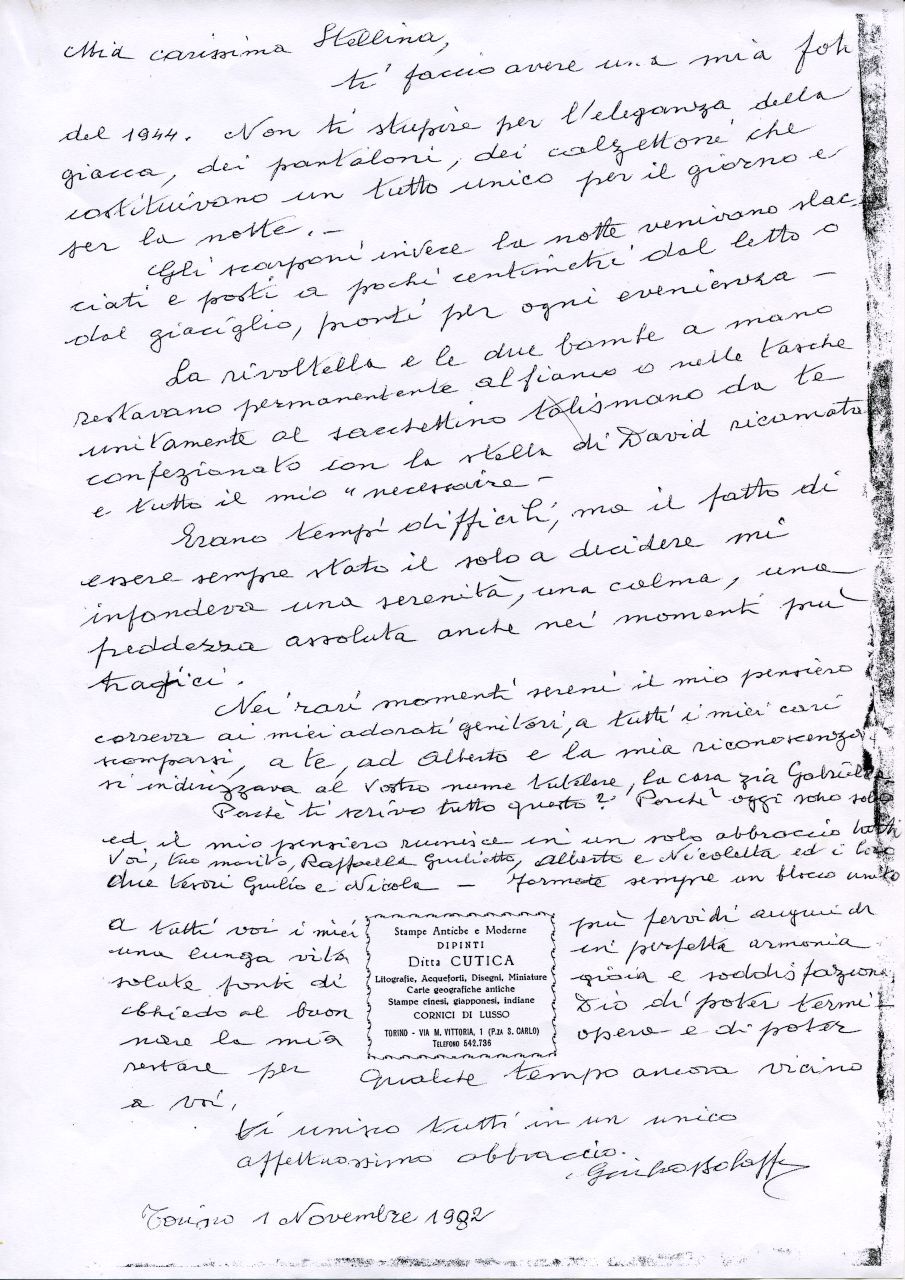 Mia carissima Stellina,
ti faccio avere una mia fot
del 1944. Non ti stupire per l'eleganza della
giacca, dei pantaloni, dei calzettoni che
costituivano un tutto unico per il giorno e
per la notte. -
Gli scarponi invece la notte venivano slac-
ciati e posti a pochi centimetri dal letto o
dal giaciglio, pronti per ogni evenienza -
La rivoltella e le due bombe a mano
restavano permanentemente al fianco o nelle tasche
unitamente al sacchettino talismano da te
confezionato con la stella di David ricamata
e tutto il mio "necessaire -
Erano tempi difficili, ma il fatto di
essere sempre stato il solo a decidere mi
infondeva una serenità, una calma, una
freddezza assoluta anche nei momenti più
tragici.
Nei rari momenti sereni il mio pensiero
correva ai miei adorati genitori, a tutti i miei cari
scomparsi, a te, ad Alberto e la mia riconoscenza
si indirizzava al Vostro nume tutelare, la cara zia Gabriella
Perchè ti scrivo tutto questo? Perchè oggi sono solo
ed il mio pensiero riunisce in un solo abbraccio tutti
Voi, tuo marito, Raffaella Giulietta, Alberto e Nicoletta ed i loro
due tesori Giulio e Nicola - Formate sempre un blocco unito
A tutti voi i miei più fervidi auguri di
una lunga vita in perfetta armonia
salute fonte di gioia e soddisfazioni
chiedo al buon Dio di poter termi-
nare la mia opera e di poter
restare per qualche tempo ancora vicino
a voi,
Vi unisco tutti in un unico
affettuosissimo abbraccio.
Giulio Bolaffi
Torino 1 Novembre 1982
Stampe Antiche e Moderne
DIPINTI
Ditta CUTICA
Litografie, Acqueforti, Disegni, Miniature
Carte geografiche antiche
Stampe cinesi, giapponesi, indiane
CORNICI DI LUSSO
TORINO - VIA M. VITTORIA, 1 (P.ZA S. CARLO)
TELEFONO 542.736